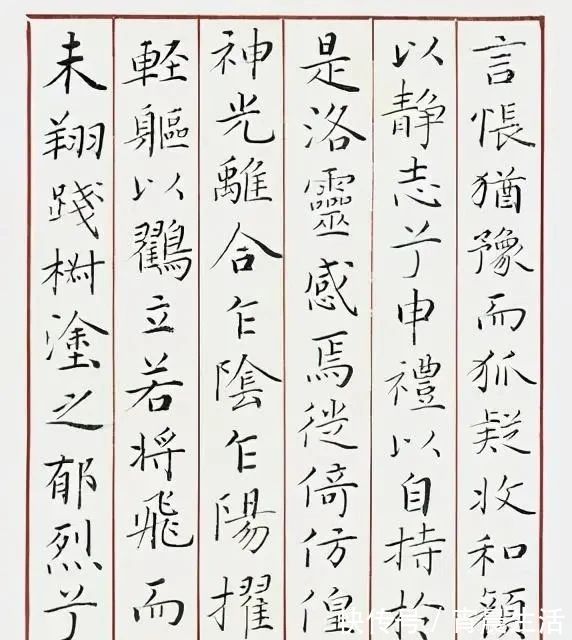 言悵猶豫而狐疑收和顏
以静志兮申禮以自持於
是洛靈感焉徙倚仿偟
神光離合乍陰乍陽擢
軽軀以鶴立若将飛而
未翔踐椒塗之郁烈兮
快传号 / 生活